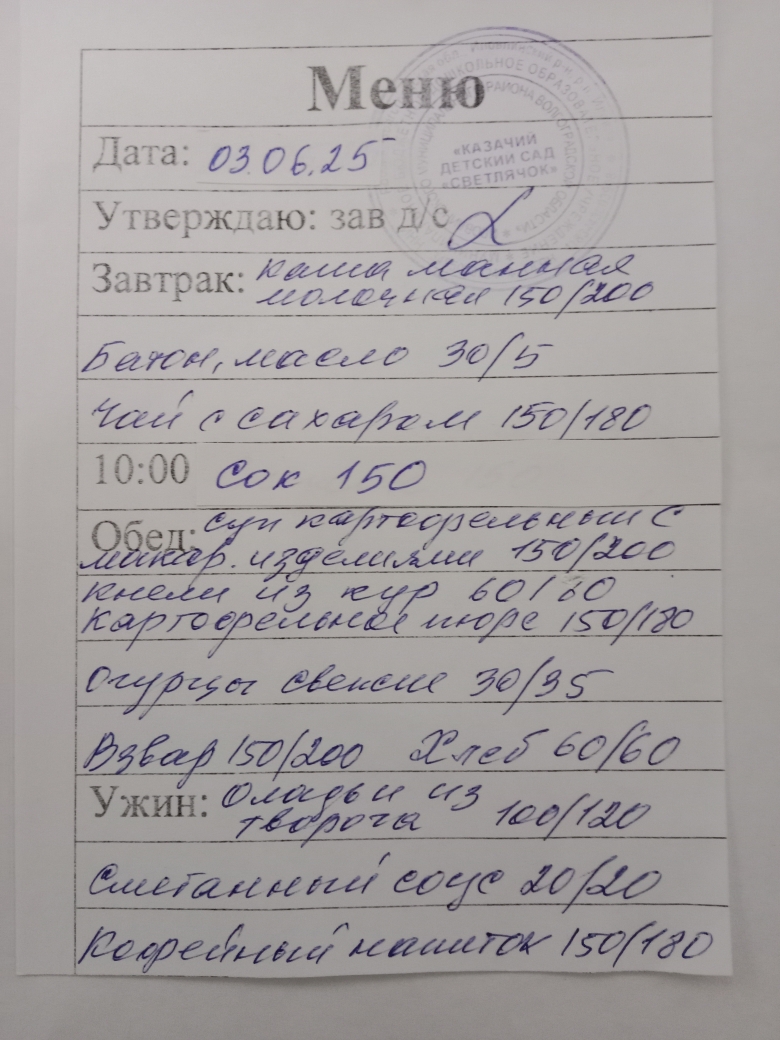 Меню
Дата: 03.06.25
Утверждаю: зав д/с
«КАЗАЧИЙ
ДЕТСКИЙ САД
«СВЕТЛЯЧОК»
Завтрак: каша манная
молочная 150/200
Батон, масло 30/5
Чай с сахаром 150/180
10:00 Сок 150
Обед: суп картофельный с
макар. изделиями 150/200
кнели из кур 60/
Картофельное пюре 150/180
Огурцы свежие 30/35
Взвар 150/200 Хлеб 60/60
Ужин: Оладьи из
творога 100/120
Сметанный соус 20/20
Кофейный напиток 150/180